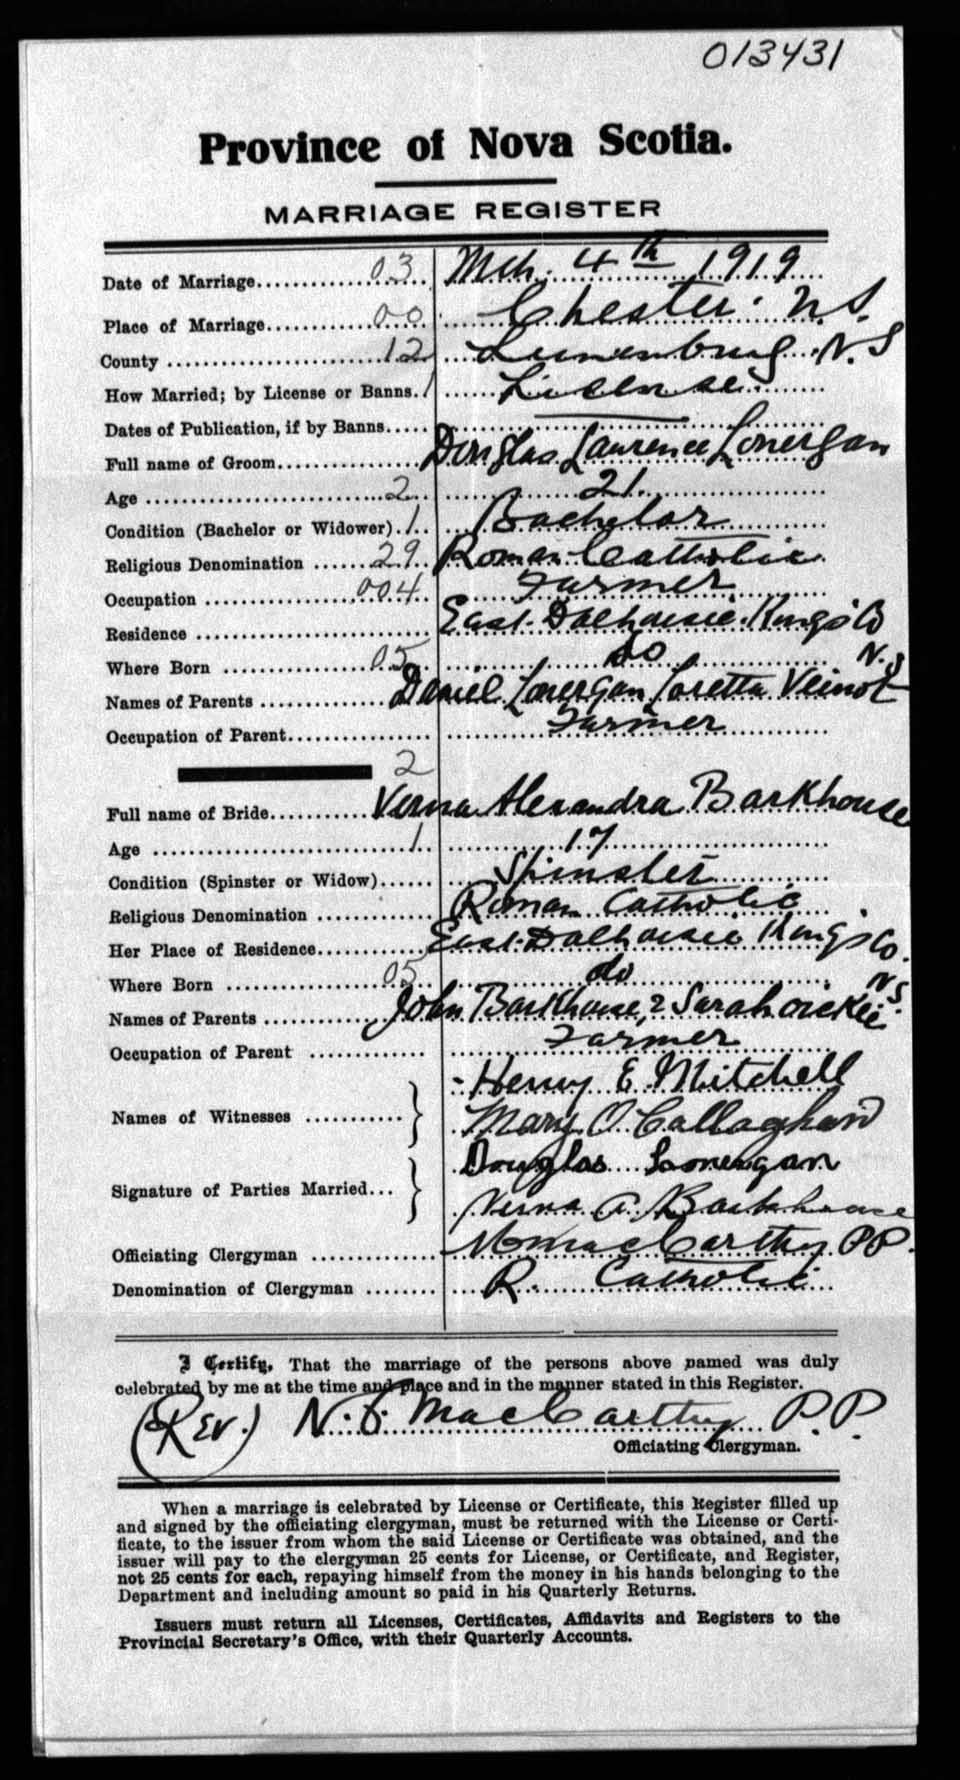 013431
Province of Nova Scotia.
MARRIAGE REGISTER
Date of Marriage 03 Mch. 4th 1919
Place of Marriage 00 Chester. N.S.
County 12 Lunenburg. N.S
How Married; by License or Banns. 1 License.
Dates of Publication, if by Banns ——
Full name of Groom Douglas Laurence Lonergan
Age 2 21.
Condition (Bachelor or Widower) 1 Bachelor
Religious Denomination 29 Roman Catholic
Occupation 004 Farmer
Residence East Dalhousie. Kings Co
N.S
Where Born 05 do
Names of Parents Daniel Lonergan Loretta Veinot
Occupation of Parent Farmer
2
Full name of Bride Verna Alexandra Barkhouse
Age 1 17
Condition (Spinster or Widow) Spinster
Religious Denomination Roman Catholic
Her Place of Residence East Dalhousie Kings Co.
N.S.
Where Born 05 do
Names of Parents John Barkhouse, & Sarah
Occupation of Parent Farmer
Names of Witnesses Henry E Mitchell
Mary O'Callaghan
Signature of Parties Married Douglas Lonergan
Verna A Barkhouse
Officiating Clergyman MacCarthy PP.
Denomination of Clergyman R. Catholic
I Certify, That the marriage of the persons above named was duly
celebrated by me at the time and place and in the manner stated in this Register.
(Rev.) N. MacCarthy P.P.
Officiating Clergyman.
When a marriage is celebrated by License or Certificate, this Register filled up
and signed by the officiating clergyman, must be returned with the License or Certi-
ficate, to the issuer from whom the said License or Certificate was obtained, and the
issuer will pay to the clergyman 25 cents for License, or Certificate, and Register,
not 25 cents for each, repaying himself from the money in his hands belonging to the
Department and including amount so paid in his Quarterly Returns.
Issuers must return all Licenses, Certificates, Affidavits and Registers to the
Provincial Secretary's Office, with their Quarterly Accounts.